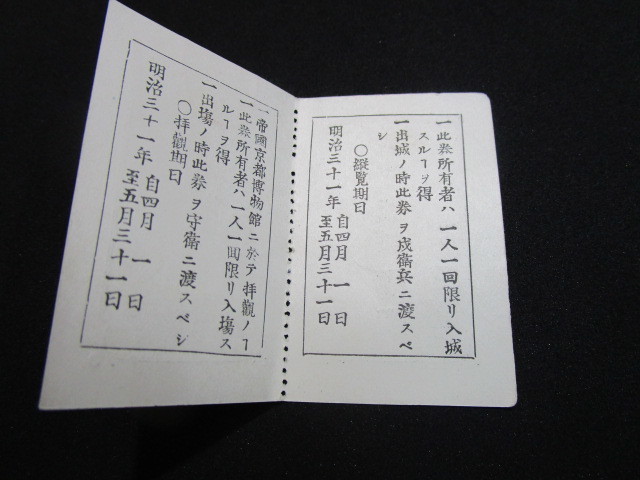 一此券所有者ハ一人一回限リ入城
スルヿヲ得
一出城ノ時此券ヲ戍衛兵ニ渡スベ
シ
〇縦覧期日
明治三十一年 自四月 一日
至五月三十一日
一帝國京都博物館ニ於テ拝觀ノヿ
一此券所有者ハ一人一回限リ入場ス
ルヿヲ得
一出場ノ時此券ヲ守衛ニ渡スベシ
〇拝觀期日
明治三十一年 自四月 一日
至五月三十一日